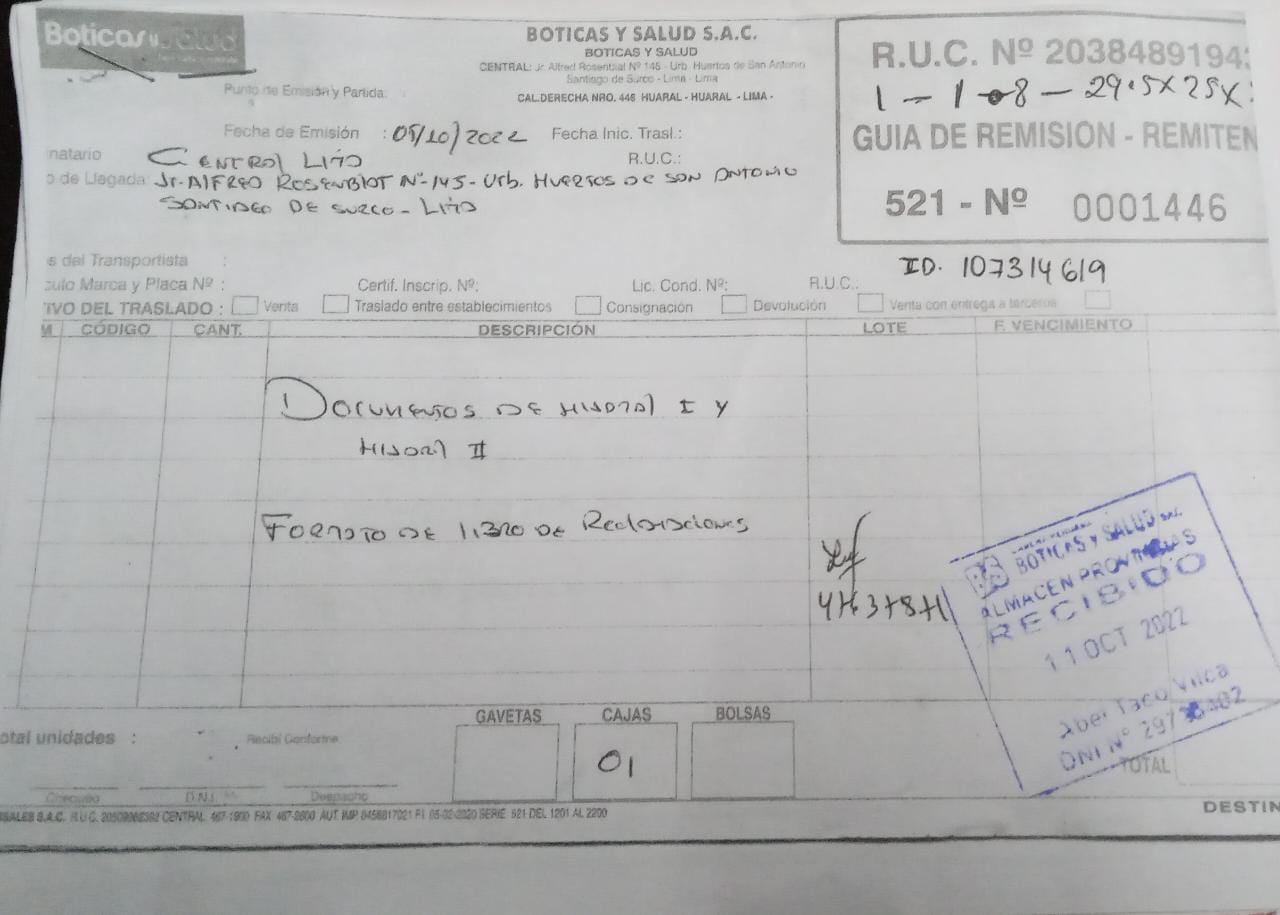 Boticas y Salud
BOTICAS Y SALUD S.A.C.
BOTICAS Y SALUD
CENTRAL: Jr. Alfred Rosenblat Nº 145 - Urb. Huertos de San Antonio
Santiago de Surco - Lima - Lima
CAL.DERECHA NRO. 446 HUARAL - HUARAL - LIMA -
R.U.C. Nº 2038489194
1 - 1 - 8 - 29.5 X 25 X
GUIA DE REMISION - REMITEN
521 - Nº 0001446
Punto de Emisión y Partida:
Fecha de Emisión : 05/10/2022 Fecha Inic. Trasl.:
natario CENTRAL LIMA R.U.C.:
o de Llegada: Jr. ALFRED ROSENBLAT Nº 145 - Urb. HUERTOS DE SAN ANTONIO
SANTIAGO DE SURCO - LIMA
ID. 107314619
s del Transportista :
culo Marca y Placa Nº : Certif. Inscrip. Nº: Lic. Cond. Nº: R.U.C.:
IVO DEL TRASLADO : Venta Traslado entre establecimientos Consignación Devolución Venta con entrega a terceros
M CÓDIGO CANT. DESCRIPCIÓN LOTE F. VENCIMIENTO
DOCUMENTOS DE I Y
II
FORMATO DE LIBRO DE Reclamaciones
BS BOTICAS Y SALUD S.A.C.
ALMACEN PROVINCIAS
RECIBIDO
11 OCT 2022
Abel Taco Vilca
DNI Nº
GAVETAS CAJAS BOLSAS
otal unidades : Recibí Conforme
01
TOTAL
Chequeo D.N.I. Nº Despacho
DESTIN
SALES S.A.C. R.U.C. CENTRAL 467-1900 FAX 467-2600 AUT. IMP. 0456817021 F.I. 05-02-2020 SERIE 521 DEL 1201 AL 2200